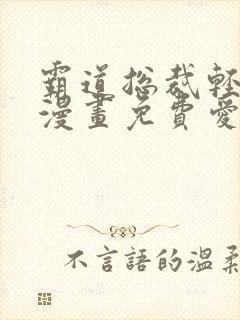 霸道总裁輕
漫畫免費愛
不言語的溫柔